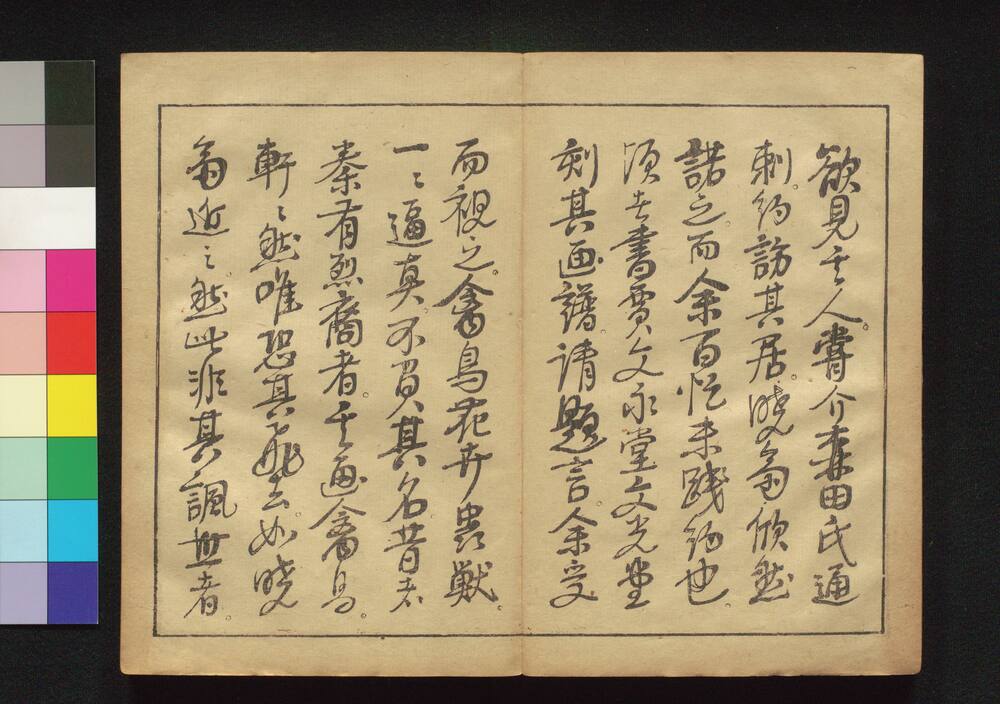 欲見其人。嘗介森田氏通
刺。約訪其居。暁翁欣然
諾之。而余百忙未践約也。
頃者書賈文永堂文光堂
刻其画譜。請題言。余受
而視之。禽鳥花卉虫獣。
一々逼真。不負其名。昔者
秦有烈裔者。其画禽鳥。
軒々然唯恐其飛去。如暁
翁近之。然此非其諷世者。